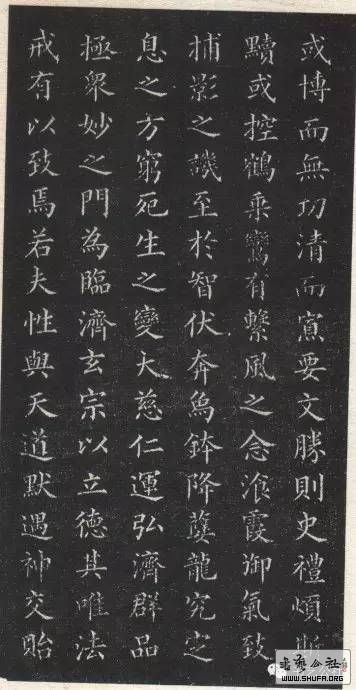 或博而無功清而寡要文勝則史禮煩斯
黷或控鶴乘鸞有繫風之念飡霞御氣致
捕影之譏至於智伏奔烏鉢降龍究
息之方窮死生之變大慈仁運弘濟群品
極眾妙之門為臨濟玄宗以立德其唯法
戒有以致焉若夫性與天道默遇神交貽
书艺公社
WWW.SHUFA.ORG